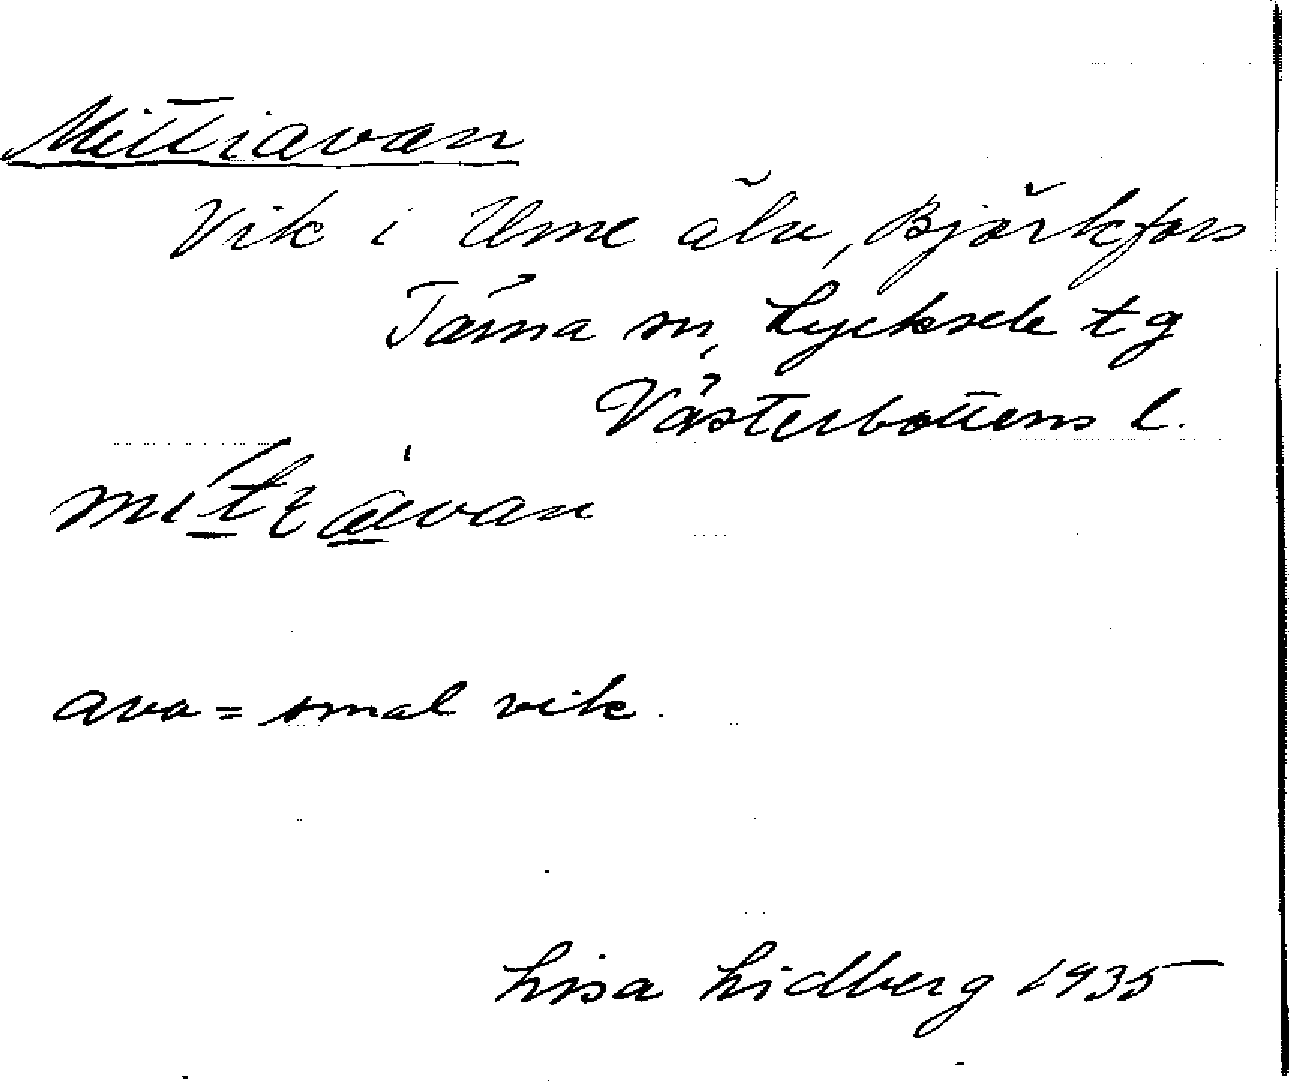 Mittiavan
Vik i Ume älv, Björkfors
Tärna sn, Lycksele tg
Västerbottens l.
ava = smal vik.
Lisa Lidberg 1935